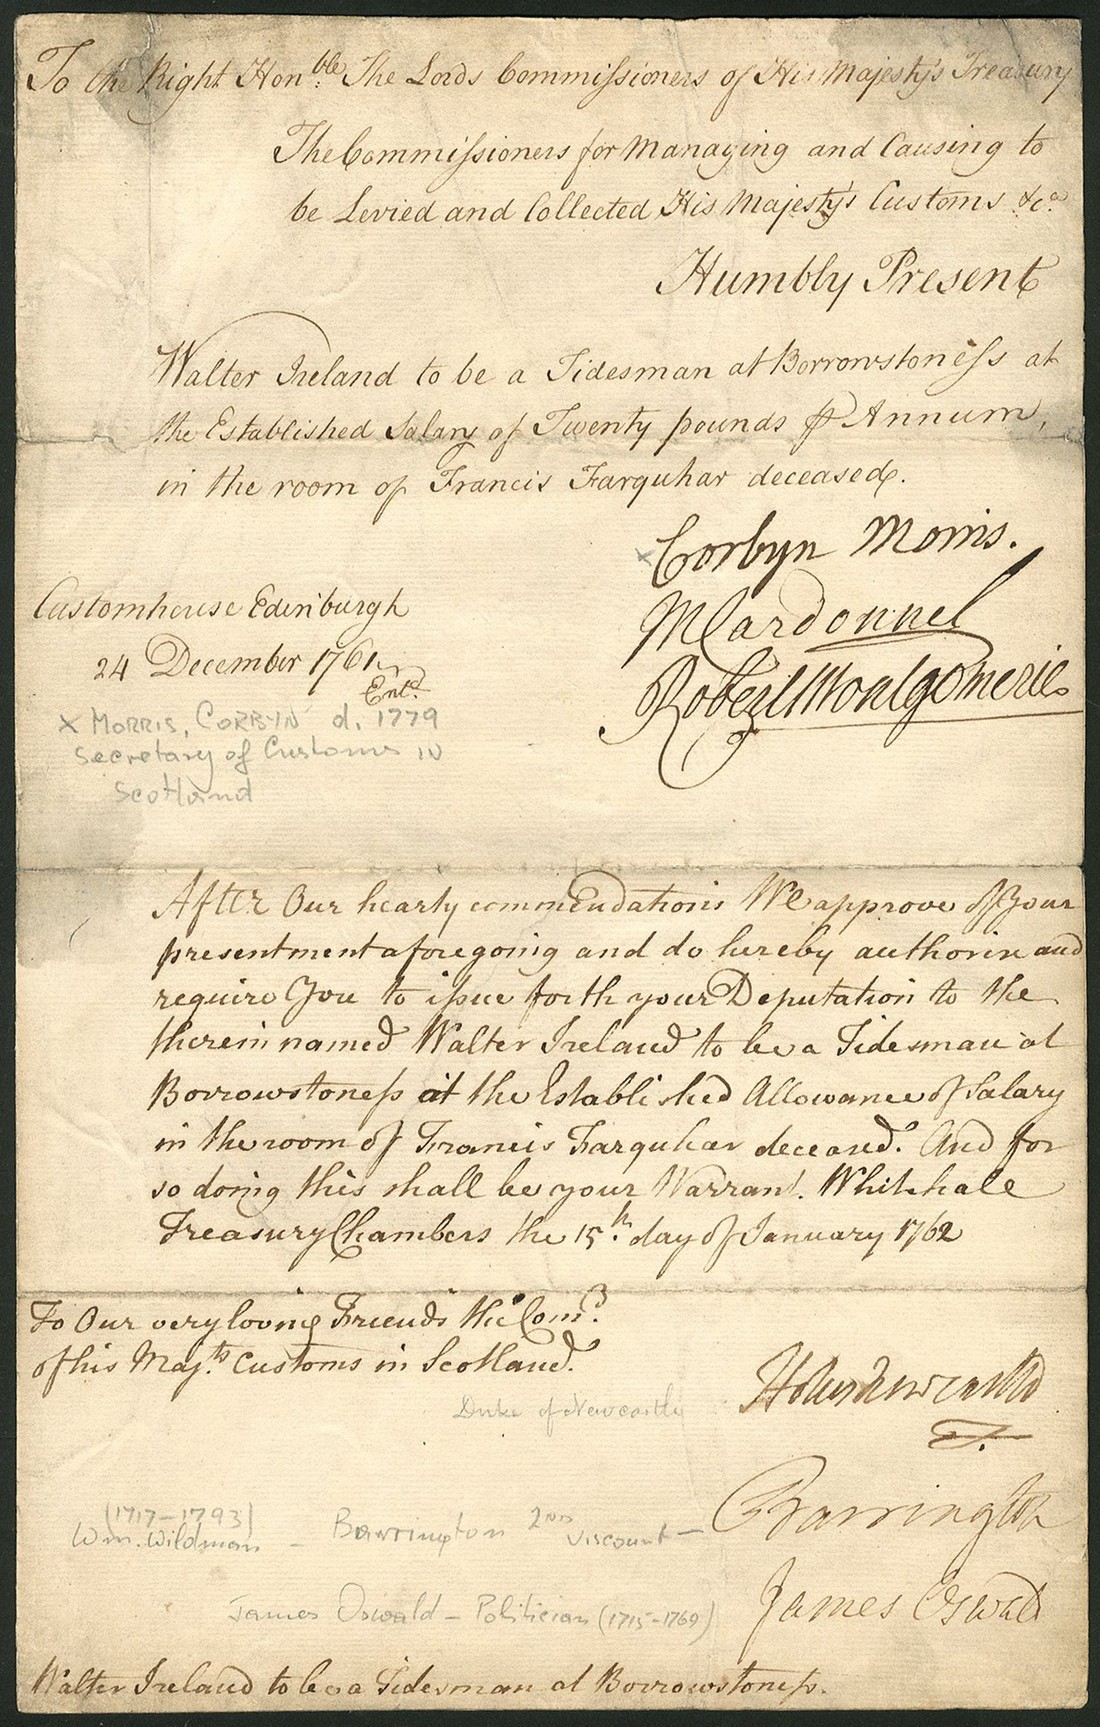 To the Right Hon.ble The Lords Commissioners of His Majesty's Treasury
The Commissioners for Managing and Causing to
be Levied and Collected His Majesty's Customs &ca.
Humbly Present
Walter Ireland to be a Tidesman at Borrowstoness at
the Established Salary of Twenty pounds ℔ Annum,
in the room of Francis Farquhar deceased.
x Corbyn Morris.
MCardonnel
Robert Montgomerie
Customhouse Edinburgh
24 December 1761
Entd.
x MORRIS, CORBYN d. 1779
Secretary of Customs in
Scotland
After Our hearty commendations We approve of Your
presentment aforegoing and do hereby authorize and
require You to issue forth your Deputation to the
therein named Walter Ireland to be a Tidesman at
Borrowstoness at the Established Allowance of Salary
in the room of Francis Farquhar deceased. And for
so doing this shall be your Warrant. Whitehall
Treasury Chambers the 15th. day of January 1762
To Our very loving Friends the Comrs.
of his Majts. Customs in Scotland.
Holles Newcastle
Duke of Newcastle
Barrington
(1717-1793)
Wm. Wildman - Barrington 2nd Viscount -
James Oswald
James Oswald - Politician (1715-1769)
Walter Ireland to be a Tidesman at Borrowstoness.